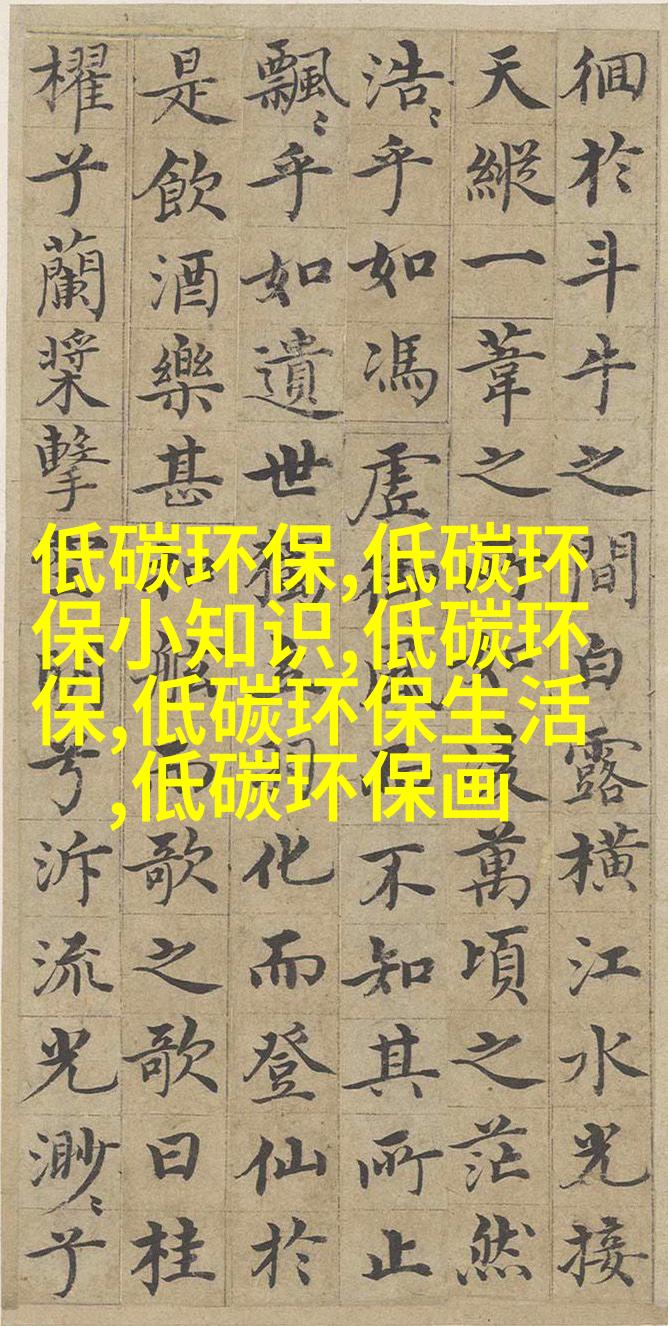 徊於斗牛之間白露橫江水光接
天縱一葦之所如凌萬頃之茫然
浩〻乎如馮虛御風而不知其所止
飄〻乎如遺世獨立羽化而登仙於
是飲酒樂甚扣舷而歌之歌曰桂
櫂兮蘭槳擊空明兮泝流光渺〻兮
低碳环保,低碳环
保小知识,低碳环
保,低碳环保生活
,低碳环保画